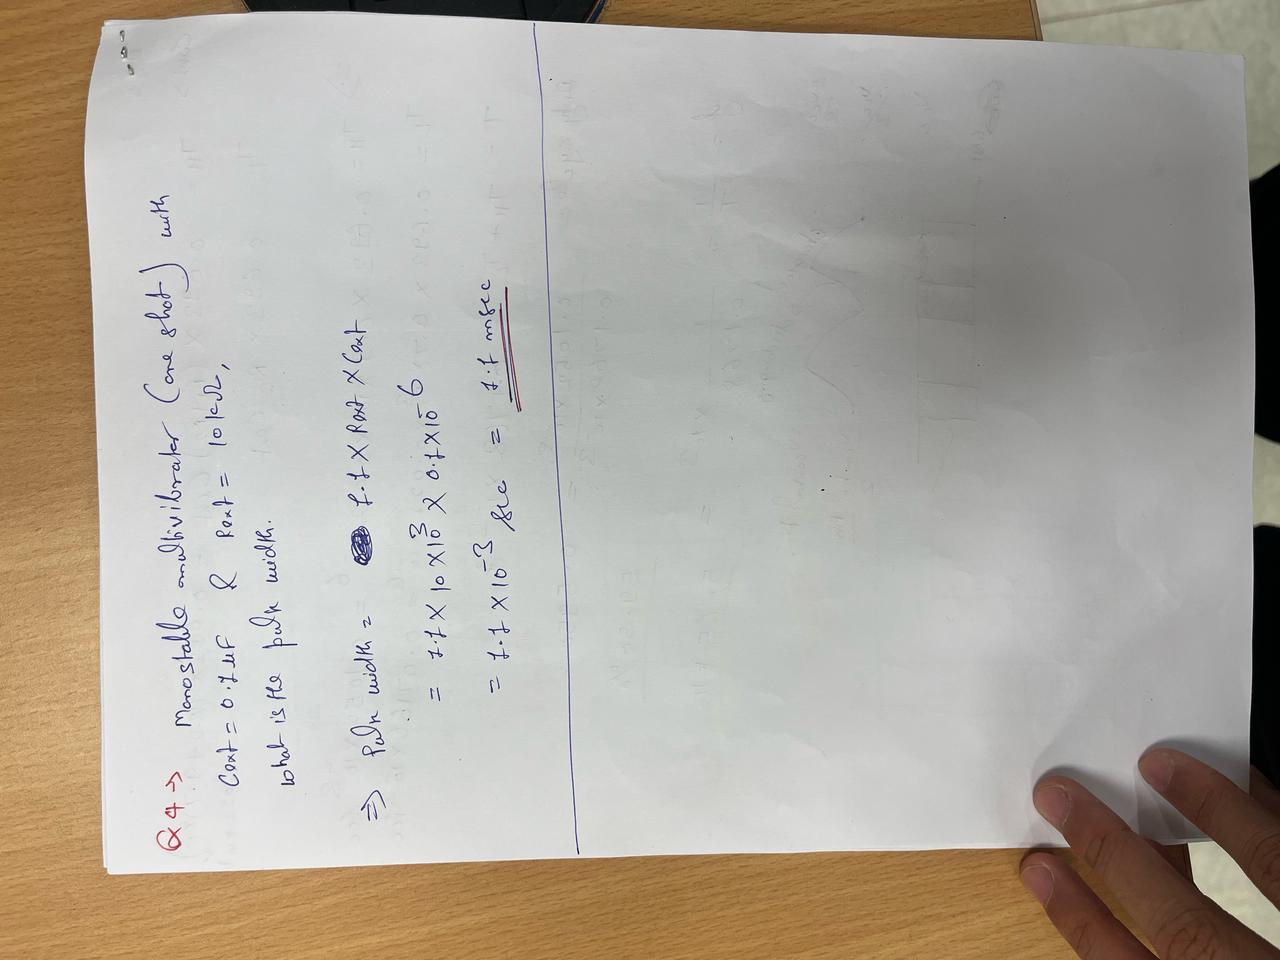 Q4 → Monostable multivibrator (one shot) with
Cext = 0.1 uF & Rext = 10kΩ,
what is the pulse width.
⇒ Pulse width = 1.1 × Rext × Cext
= 1.1 × 10 × 10³ × 0.1 × 10⁻⁶
= 1.1 × 10⁻³ sec = 1.1 msec